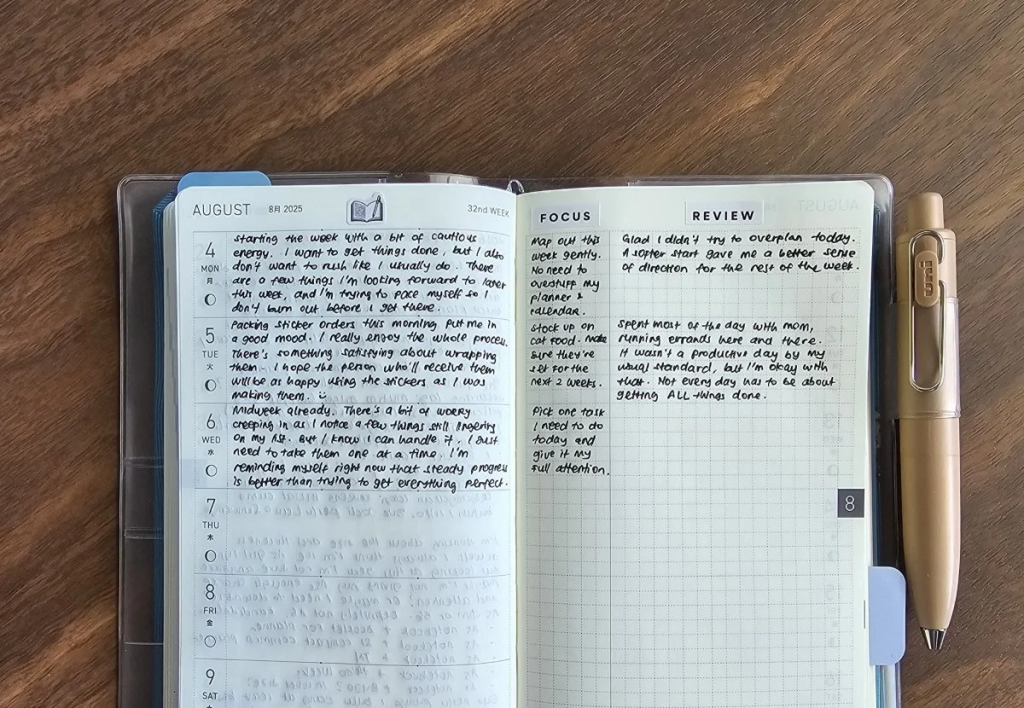 AUGUST 8月 2025
32nd WEEK
4
MON
月
starting the week with a bit of cautious
energy. I want to get things done, but I also
don't want to rush like I usually do. There
are a few things I'm looking forward to later
this week, and I'm trying to pace myself so I
don't burn out before I get there.
5
TUE
火
Packing sticker orders this morning put me in
a good mood. I really enjoy the whole process.
There's something satisfying about wrapping
them. I hope the person who'll receive them
will be as happy using the stickers as I was
making them.
6
WED
水
Midweek already. There's a bit of worry
creeping in as I notice a few things still lingering
on my list. But I know I can handle it. I just
need to take them one at a time. I'm
reminding myself right now that steady progress
is better than trying to get everything perfect.
7
THU
木
8
FRI
金
9
SAT
FOCUS
Map out this
week gently.
No need to
overstuff my
planner &
calendar.
Stock up on
cat food. Make
sure they're
set for the
next 2 weeks.
Pick one task
I need to do
today and
give it my
full attention.
REVIEW
Glad I didn't try to overplan today.
A softer start gave me a better sense
of direction for the rest of the week.
Spent most of the day with mom,
running errands here and there.
It wasn't a productive day by my
usual standard, but I'm okay with
that. Not every day has to be about
getting ALL things done.
8
uni